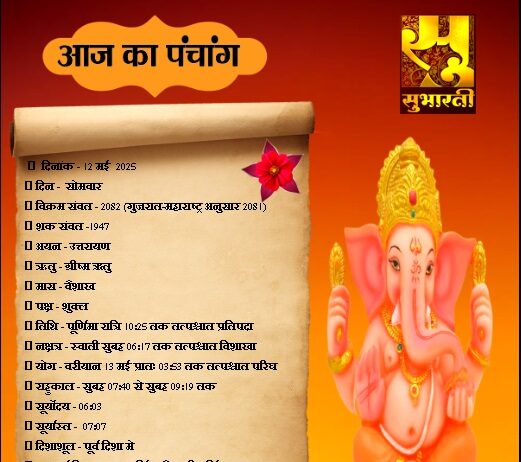 आज का पंचांग
सुभारती
दिनांक - 12 मई 2025
दिन - सोमवार
विक्रम संवत - 2082 (गुजरात-महाराष्ट्र अनुसार 2081)
शक संवत -1947
अयन - उत्तरायण
ऋतु - ग्रीष्म ऋतु
मास - वैशाख
पक्ष - शुक्ल
तिथि - पूर्णिमा रात्रि 10:25 तक तत्पश्चात प्रतिपदा
नक्षत्र - स्वाती सुबह 06:17 तक तत्पश्चात विशाखा
योग - वरीयान 13 मई प्रातः 03:53 तक तत्पश्चात परिघ
राहुकाल - सुबह 07:40 से सुबह 09:19 तक
सूर्योदय - 06:03
सूर्यास्त - 07:07
दिशाशूल - पूर्व दिशा मे